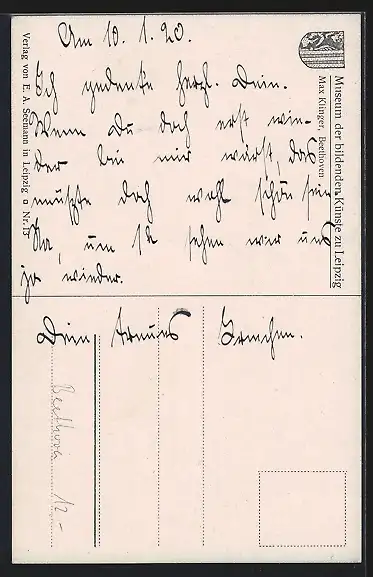 Am 10. 1. 20.
Ich gedenke herzl. Dein.
Wenn Du doch erst wie-
der bei mir wärst, das
müßte doch wohl schön sein
Na, um 12 sehen wir uns
ja wieder.
Dein treues
Museum der bildenden Künste zu Leipzig
Max Klinger, Beethoven
Verlag von E. A. Seemann in Leipzig □ Nr. 13
Beethoven 12 -